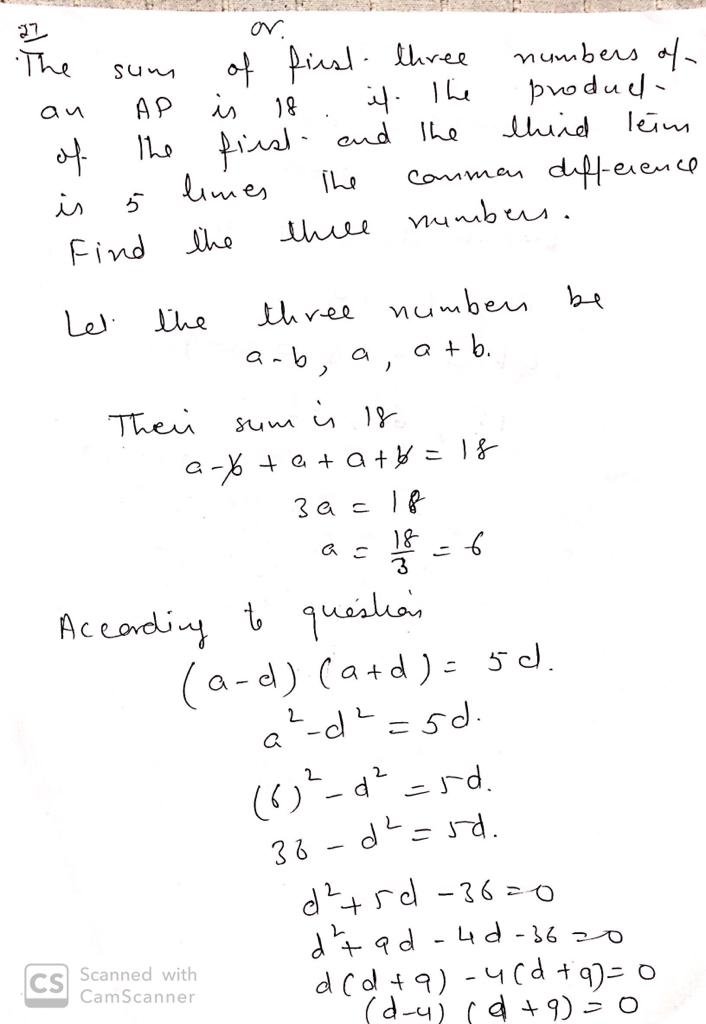 27
or.
The sum of first three numbers of
an AP is 18. if the product
of the first and the third term
is 5 times the common difference
Find the three numbers.
Let the three numbers be
a-b, a, a+b.
Their sum is 18
a-b + a + a+b = 18
3a = 18
a = 18/3 = 6
According to question
(a-d) (a+d) = 5d.
a² - d² = 5d.
(6)² - d² = 5d.
36 - d² = 5d.
d² + 5d - 36 = 0
d² + 9d - 4d - 36 = 0
d(d+9) - 4(d+9) = 0
(d-4) (d+9) = 0
CS Scanned with
CamScanner